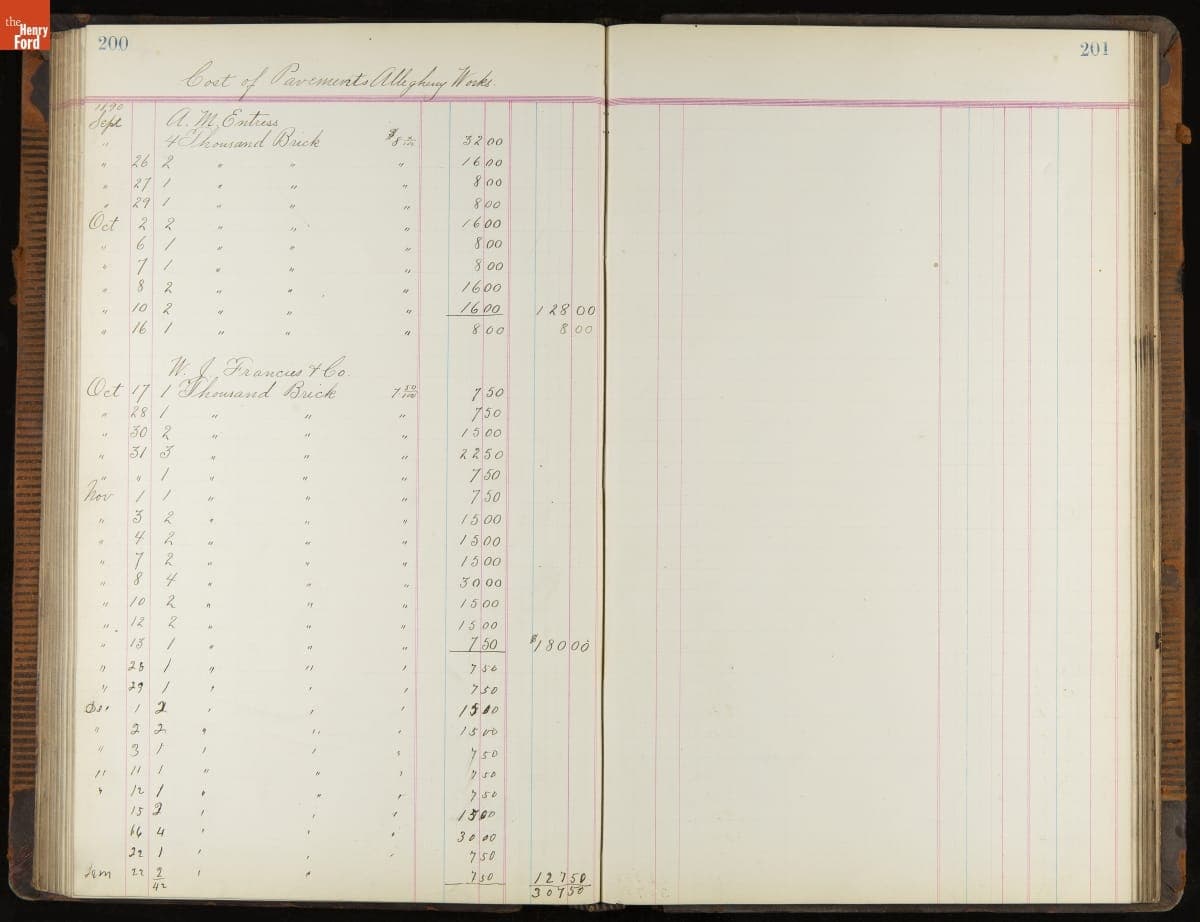 the Henry Ford
200
201
Cost of Pavements Allegheny Works.
1890
Sept A. M. Entress
" 4 Thousand Brick $8 00/100 32 00
" 26 2 " " " 16 00
" 27 1 " " " 8 00
" 29 1 " " " 8 00
Oct 2 2 " " " 16 00
" 6 1 " " " 8 00
" 7 1 " " " 8 00
" 8 2 " " " 16 00
" 10 2 " " " 16 00 128 00
" 16 1 " " " 8 00 8 00
W. J. Francies & Co.
Oct 17 1 Thousand Brick 7 50/100 7 50
" 28 1 " " " 7 50
" 30 2 " " " 15 00
" 31 3 " " " 22 50
" " 1 " " " 7 50
Nov 1 1 " " " 7 50
" 3 2 " " " 15 00
" 4 2 " " " 15 00
" 7 2 " " " 15 00
" 8 4 " " " 30 00
" 10 2 " " " 15 00
" 12 2 " " " 15 00
" 13 1 " " " 7 50 $180 00
" 28 1 " " " 7 50
" 29 1 " " " 7 50
1 2 " " " 15 00
" 2 2 " " " 15 00
" 3 1 " " " 7 50
" 11 1 " " " 7 50
" 12 1 " " " 7 50
15 2 " " " 15 00
16 4 " " " 30 00
22 1 " " " 7 50
Jan 22 2 " " 7 50 127 50
42 307 50